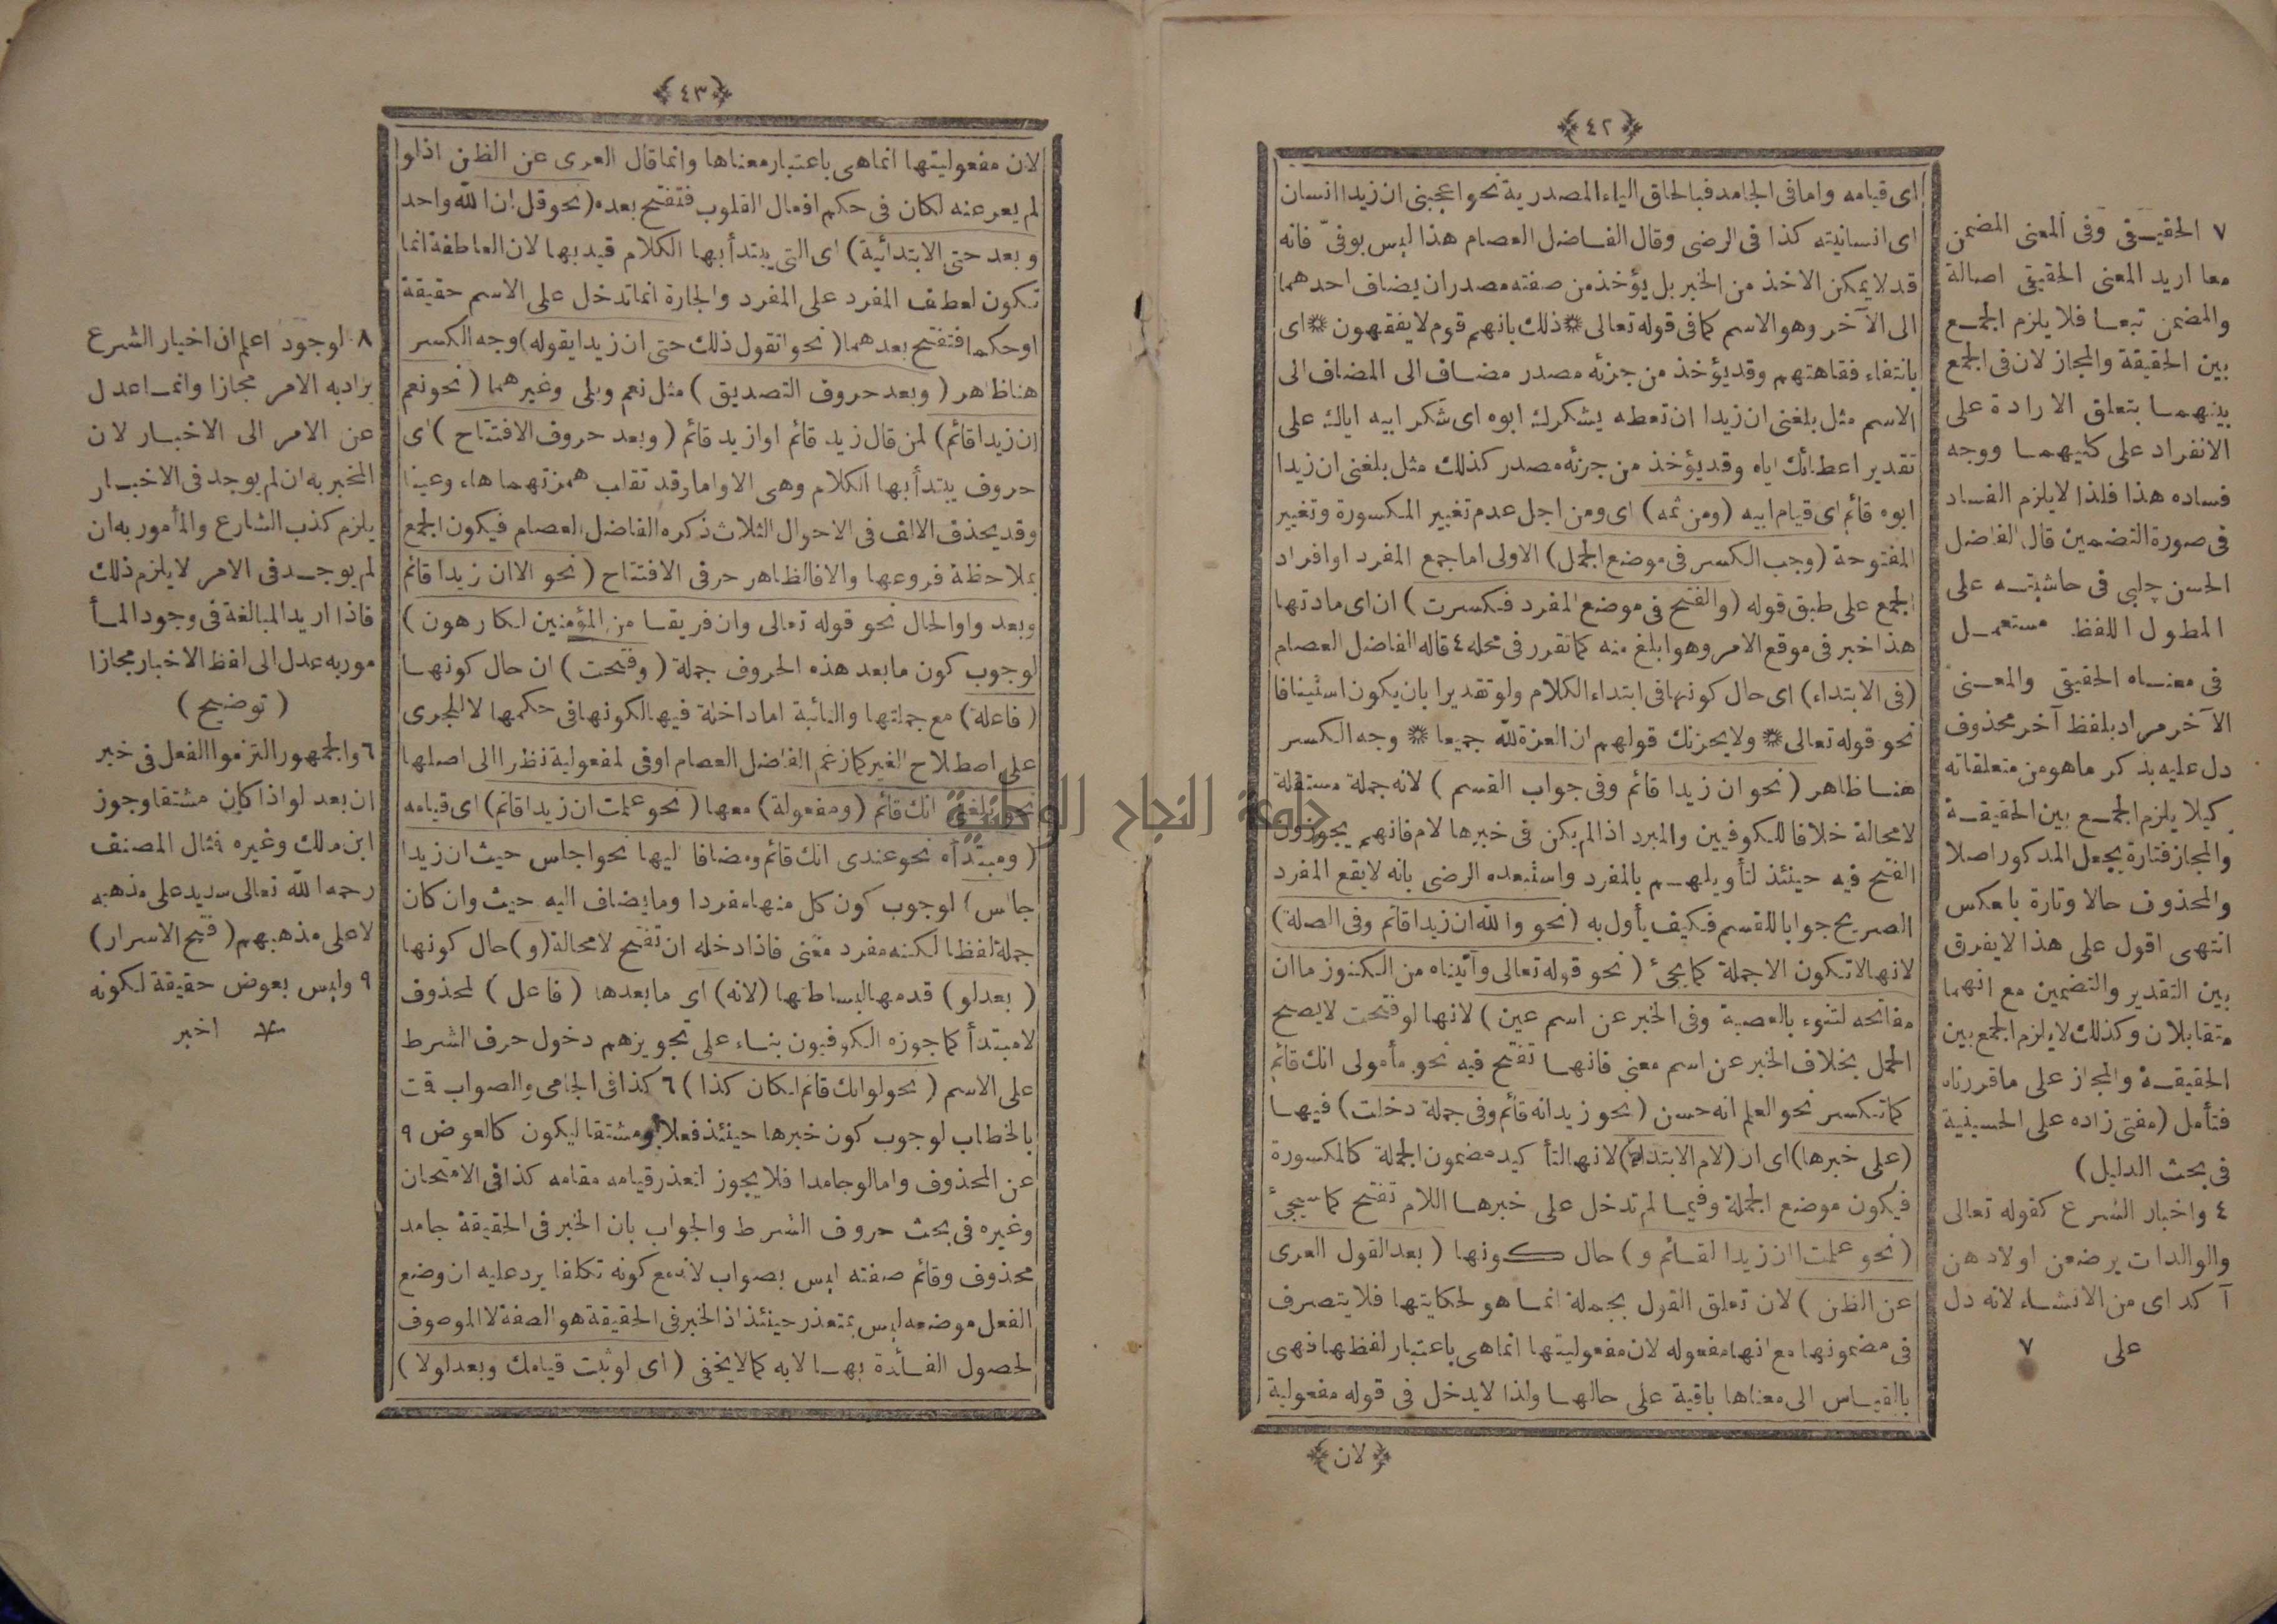 ﴿٤٢﴾
اى قيامه واما فى الجامد فبالحاق الياء المصدرية نحو اعجبنى ان زيدا انسان
اى انسانيته كذا فى الرضى وقال الفاضل العصام هذا ليس بوفىّ فانه
قد لا يمكن الاخذ من الخبر بل يؤخذ من صفته مصدر ان يضاف احدهما
الى الآخر وهو الاسم كما فى قوله تعالى * ذلك بانهم قوم لا يفقهون * اى
بانتفاء فقاهتهم وقد يؤخذ من جزئه مصدر مضاف الى المضاف الى
الاسم مثل بلغنى ان زيدا ان تعطه يشكرك ابوه اى شكر ابيه اياك على
تقدير اعطائك اياه وقد يؤخذ من جزئه مصدر كذلك مثل بلغنى ان زيدا
ابوه قائم اى قيام ابيه (ومن ثمه) اى ومن اجل عدم تغيير المكسورة وتغيير
المفتوحة (وجب الكسر فى موضع الجمل) الاولى اما جمع المفرد او افراد
الجمع على طبق قوله (والفتح فى موضع المفرد فكسرت) ان اى مادتها
هذا خبر فى موقع الامر وهو ابلغ منه كما تقرر فى محله ٤ قاله الفاضل العصام
(فى الابتداء) اى حال كونها فى ابتداء الكلام ولو تقديرا بان يكون استينافا
نحو قوله تعالى * ولا يحزنك قولهم ان العزة لله جميعا * وجه الكسر
هنا ظاهر (نحو ان زيدا قائم وفى جواب القسم) لانه جملة مستقلة
لا محالة خلافا للكوفيين والمبرد اذا لم يكن فى خبرها لام فانهم يجوزون
الفتح فيه حينئذ لتأويلهم بالمفرد واستبعده الرضى بانه لا يقع المفرد
الصريح جوابا للقسم فكيف يأول به (نحو والله ان زيدا قائم وفى الصلة)
لانها لا تكون الا جملة كما يجئ (نحو قوله تعالى وآتيناه من الكنوز ما ان
مفاتحه لتنوء بالعصبة وفى الخبر عن اسم عين) لانها لو فتحت لا يصح
الحمل بخلاف الخبر عن اسم معنى فانها تفتح فيه نحو مأمولى انك قائم
كما تكسر نحو العلم انه حسن (نحو زيد انه قائم وفى جملة دخلت) فيها
(على خبرها) اى ان (لام الابتداء) لانها لتأكيد مضمون الجملة كالمكسورة
فيكون موضع الجملة وفيما لم تدخل على خبرها اللام تفتح كما سيجئ
(نحو علمت ان زيدا لقائم و) حال كونها (بعد القول العرى
عن الظن) لان تعلق القول بجملة انما هو لحكايتها فلا يتصرف
فى مضمونها مع انها مفعوله لان مفعوليتها انما هى باعتبار لفظها فهى
بالقياس الى معناها باقية على حالها ولذا لا يدخل فى قوله مفعولية
﴿لان﴾
٧ الحقيقى وفى المعنى المضمن
معا اريد المعنى الحقيقى اصالة
والمضمن تبعا فلا يلزم الجمع
بين الحقيقة والمجاز لان فى الجمع
بينهما بتعلق الارادة على
الانفراد على كليهما ووجه
فساده هذا فلذا لا يلزم الفساد
فى صورة التضمين قال الفاضل
الحسن چلبى فى حاشيته على
المطول اللفظ مستعمل
فى معناه الحقيقى والمعنى
الآخر مراد بلفظ آخر محذوف
دل عليه بذكر ما هو من متعلقاته
كيلا يلزم الجمع بين الحقيقة
والمجاز فتارة يجعل المذكور اصلا
والمحذوف حالا وتارة بالعكس
انتهى اقول على هذا لا يفرق
بين التقدير والتضمين مع انهما
متقابلان وكذلك لا يلزم الجمع بين
الحقيقة والمجاز على ما قررناه
فتأمل (مفتى زاده على الحسينية
فى بحث الدليل)
٤ واخبار الشرع كقوله تعالى
والوالدات يرضعن اولادهن
آكد اى من الانشاء لانه دل
على ٧
﴿٤٣﴾
لان مفعوليتها انما هى باعتبار معناها وانما قال العرى عن الظن اذ لو
لم يعر عنه لكان فى حكم افعال القلوب فتفتح بعده (نحو قل ان الله واحد
وبعد حتى الابتدائية) اى التى يبتدأ بها الكلام قيد بها لان العاطفة انما
تكون لعطف المفرد على المفرد والجارة انما تدخل على الاسم حقيقة
او حكما فتفتح بعدهما (نحو اتقول ذلك حتى ان زيدا يقوله) وجه الكسر
هنا ظاهر (وبعد حروف التصديق) مثل نعم وبلى وغيرهما (نحو نعم
ان زيدا قائم) لمن قال زيد قائم او ازيد قائم (وبعد حروف الافتتاح) اى
حروف يبتدأ بها الكلام وهى الا واما وقد تقلب همزتهما هاء وعينا
وقد يحذف الالف فى الاحوال الثلاث ذكره الفاضل العصام فيكون الجمع
بملاحظة فروعها والا فالظاهر حرفى الافتتاح (نحو الا ان زيدا قائم
وبعد واو الحال نحو قوله تعالى وان فريقا من المؤمنين لكارهون)
لوجوب كون ما بعد هذه الحروف جملة (وفتحت) ان حال كونها
(فاعلة) مع جملتها والنائبة اما داخلة فيها لكونها فى حكمها لا للجرى
على اصطلاح الغير كما زعم الفاضل العصام او فى لمفعولية نظرا الى اصلها
نحو بلغنى انك قائم (ومفعولة) معها (نحو علمت ان زيدا قائم) اى قيامه
(ومبتدأه نحو عندى انك قائم ومضافا اليها نحو اجلس حيث ان زيدا
جالس) لوجوب كون كل منها مفردا وما يضاف اليه حيث وان كان
جملة لفظا لكنه مفرد معنى فاذا دخله ان تفتح لا محالة (و) حال كونها
(بعد لو) قدمها لبساطتها (لانه) اى ما بعدها (فاعل) لمحذوف
لا مبتدأ كما جوزه الكوفيون بناء على تجويزهم دخول حرف الشرط
على الاسم (نحو لو انك قائم لكان كذا) ٦ كذا فى الجامى والصواب قت
بالخطاب لوجوب كون خبرها حينئذ فعلا او مشتقا ليكون كالعوض ٩
عن المحذوف واما لو جامدا فلا يجوز لتعذر قيامه مقامه كذا فى الامتحان
وغيره فى بحث حروف الشرط والجواب بان الخبر فى الحقيقة جامد
محذوف وقائم صفته ليس بصواب لانه مع كونه تكلفا يرد عليه ان وضع
الفعل موضعه ليس بمتعذر حينئذ اذ الخبر فى الحقيقة هو الصفة لا الموصوف
لحصول الفائدة بها لا به كما لا يخفى (اى لو ثبت قيامك وبعد لولا)
٨ لوجود اعلم ان اخبار الشرع
يراد به الامر مجازا وانما عدل
عن الامر الى الاخبار لان
المخبر به ان لم يوجد فى الاخبار
يلزم كذب الشارع والمأمور به ان
لم يوجد فى الامر لا يلزم ذلك
فاذا اريد المبالغة فى وجود المأ
مور به عدل الى لفظ الاخبار مجازا
(توضيح)
٦ والجمهور التزموا الفعل فى خبر
ان بعد لو اذا كان مشتقا وجوز
ابن مالك وغيره فمثال المصنف
رحمه الله تعالى سديد على مذهبه
لا على مذهبهم (فتح الاسرار)
٩ وليس بعوض حقيقة لكونه
اخبر
جامعة النجاح الوطنية